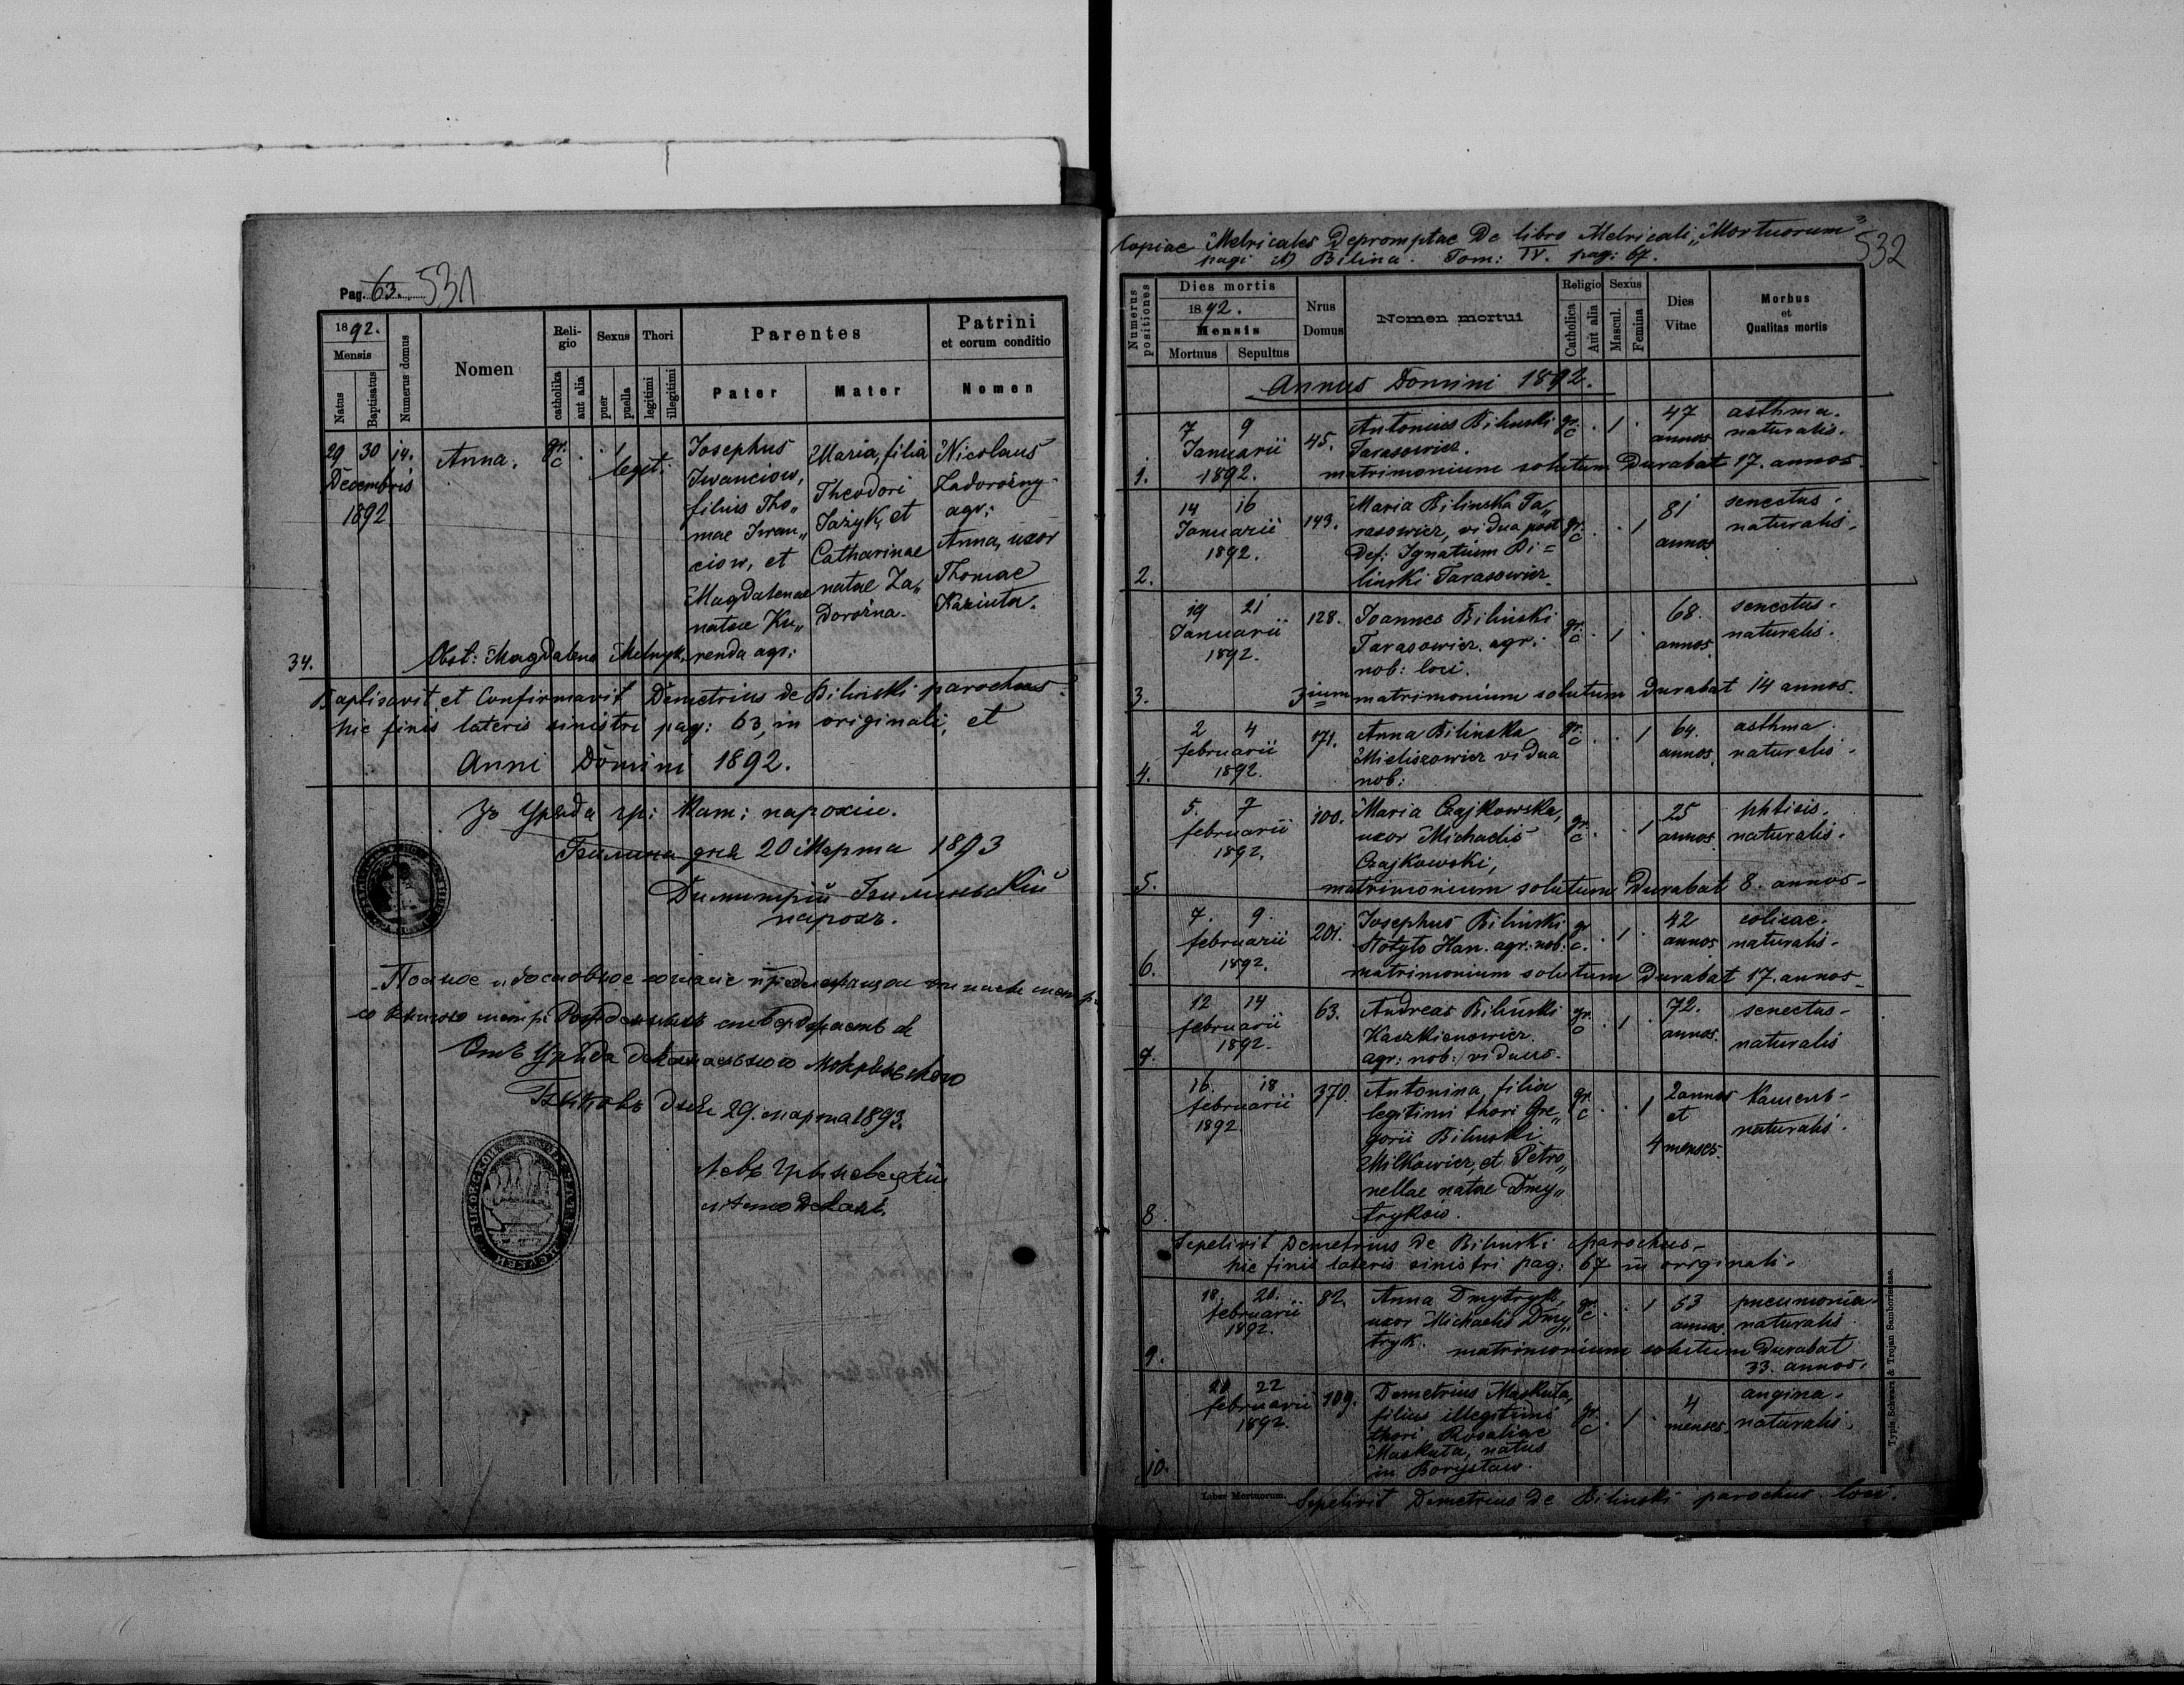 Pag. 63. 531
1892.
Mensis
Natus
Baptisatus
Numerus domus
Nomen
Reli-
gio
catholika
aut alia
Sexus
puer
puella
Thori
legitimi
illegitimi
Parentes
Pater
Mater
Patrini
et eorum conditio
Nomen
29 30 14.
Decembris
1892
Anna.
gr.
c
1
legit.
Josephus
Iwanciow,
filius Tho„
mae Iwan„
ciow, et
Magdalenae
natae Ku„
renda agr:
Maria, filia
Theodori
Jażyk, et
Catharinae
natae Za„
dorożna.
Nicolaus
Zadorożny
agr:
Anna, uxor
Thomae
Kaziuta.
34. Obst: Magdalena Melnyk,
Baptisavit et Confirmavit Demetrius de Bilinski parochus.
hic finis lateris sinistri pag: 63, in originali, et
Anni Domini 1892.
Зъ Уряда гр: кат: парохіи.
Билина дня 20 Марта 1893
Димитрій Билиньскій
парохъ.
Отъ Уряда
дня 29. марта 1893.
Левъ
Copiae Metricales Depromptae De libro Metricali „Mortuorum"
pagi Bilina. Tom: IV. pag: 67.
532
Numerus
positiones
Dies mortis
1892.
Mensis
Mortuus
Sepultus
Nrus
Domus
Nomen mortui
Religio
Catholica
Aut alia
Sexus
Mascul.
Femina
Dies
Vitae
Morbus
et
Qualitas mortis
Annus Domini 1892.
7 9 45. Antonius Bilinski gr. 1 47 asthma.
Januarii Tarasowicz. c annos naturalis.
1. 1892. matrimonium solutum Durabat 17. annos.
14 16 143. Maria Bilinska Ta„ 81 senectus.
Januarii rasowicz, vidua post gr. 1 annos naturalis.
1892. def: Ignatium Bi= c
2. linski Tarasowicz.
19 21 128. Joannes Bilinski gr. 1 68. senectus.
Januarii Tarasowicz. agr: c annos. naturalis.
1892. nob: loci.
3. 3ium matrimonium solutum Durabat 14 annos.
2 4 171. Anna Bilinska gr. 1 64. asthma
februarii Mieliszowicz vidua c annos. naturalis.
4. 1892. nob:
5. 7 100. Maria Czajkowska, gr. 1 25 phtisis.
februarii uxor Michaelis c annos. naturalis.
1892. Czajkowski,
5. matrimonium solutum Durabat 8. annos.
7. 9. 201. Josephus Bilinski gr 1 42 colicae.
februarii Stotyto Han. agr: nob: c. annos naturalis.
6. 1892. matrimonium solutum Durabat 17. annos.
12 14 63. Andreas Bilinski gr. 1 72. senectus.
februarii Kaczkienowicz. c annos. naturalis
7. 1892. agr: nob: viduus.
16. 18 370. Antonina, filia gr. 1 2 annos
februarii legitimi thori Gre„ c et naturalis.
1892. gorii Bilinski 4 menses.
Milkowicz, et Petro„
nellae natae Dmy„
8. tryków.
Sepelivit Demetrius de Bilinski parochus.
hic finis lateris sinistri pag: 67 in originali.
18. 20. 82. Anna Dmytryk, gr. 1 53 pneumonia.
februarii uxor Michaelis Dmy„ c annos. naturalis
1892. tryk.
9. matrimonium solutum Durabat
33. annos.
20 22 109. Demetrius Maskuta, gr. 1 4 angina.
februarii filius illegitimi c menses. naturalis.
1892. thori Rosaliae
Maskuta, natus
10. in Borysław.
Liber Mortuorum. Sepelivit Demetrius de Bilinski parochus loci.
Typis Schwarz & Trojan Samboriense.